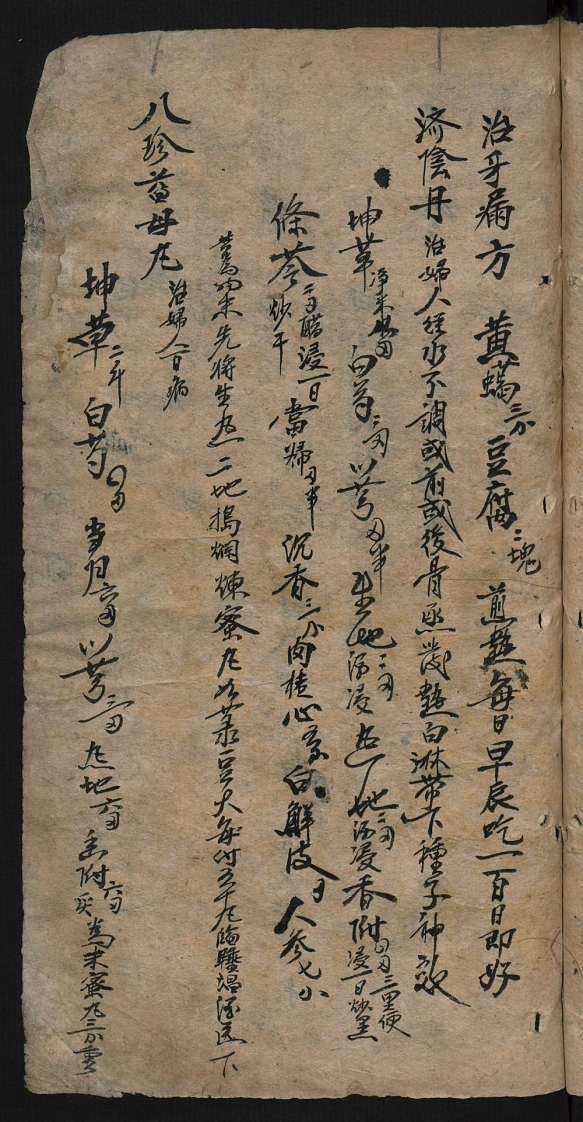 治牙漏方 黄蠟三分 豆腐二塊 煎熱每日早辰吃一百日即好
济陰丹 治婦人經水不調或前或後骨蒸發熱白淋帶下種子神效
坤草净末 白芍二両 川芎両半 生地二両酒浸 熟地二両酒浸 香附四両三里便浸一日炒黑
條芩二両醋浸一日炒干 當歸両半 沉香三分 肉桂心 白鮮皮 人參七分
共為末先将生熟二地搗爛煉蜜丸如菉豆大每付五十丸臨睡温酒送下
八珍益母丸 治婦人百病
坤草二斤 白芍四両 当归六両 川芎三両 熟地六両 香附六両 為末蜜丸三分重